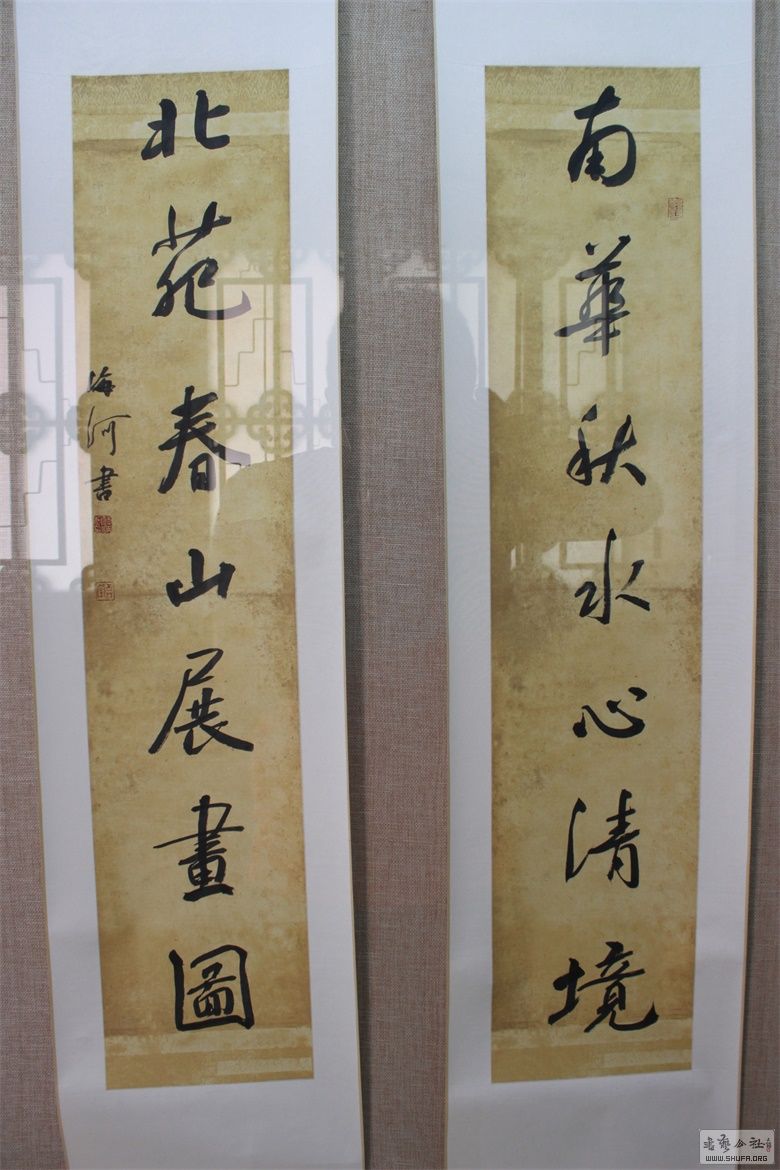 南華秋水心清境
北苑春山展畫圖
海河書
书艺公社
WWW.SHUFA.ORG